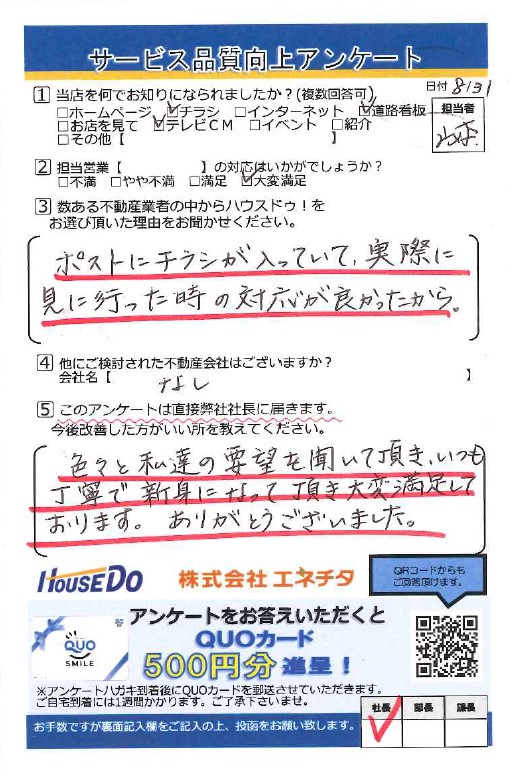 サービス品質向上アンケート
日付 8/31
担当者
1 当店を何でお知りになられましたか？(複数回答可)
□ホームページ ☑チラシ □インターネット ☑道路看板
□お店を見て ☑テレビCM □イベント □紹介
□その他【 】
2 担当営業【 】の対応はいかがでしょうか？
□不満 □やや不満 □満足 ☑大変満足
3 数ある不動産業者の中からハウスドゥ！を
お選び頂いた理由をお聞かせください。
ポストにチラシが入っていて、実際に
見に行った時の対応が良かったから。
4 他にご検討された不動産会社はございますか？
会社名【 なし 】
5 このアンケートは直接弊社社長に届きます。
今後改善した方がいい所を教えてください。
色々と私達の要望を聞いて頂き、いつも
丁寧で新身になって頂き大変満足して
おります。ありがとうございました。
HOUSEDO 株式会社 エネチタ
QRコードからも
ご回答頂けます。
アンケートをお答えいただくと
QUOカード
500円分 進呈！
QUO
SMILE
※アンケートハガキ到着後にQUOカードを郵送させていただきます。
ご自宅到着には1週間かかります。ご了承下さいませ。
お手数ですが裏面記入欄をご記入の上、投函をお願い致します。
社長 部長 課長